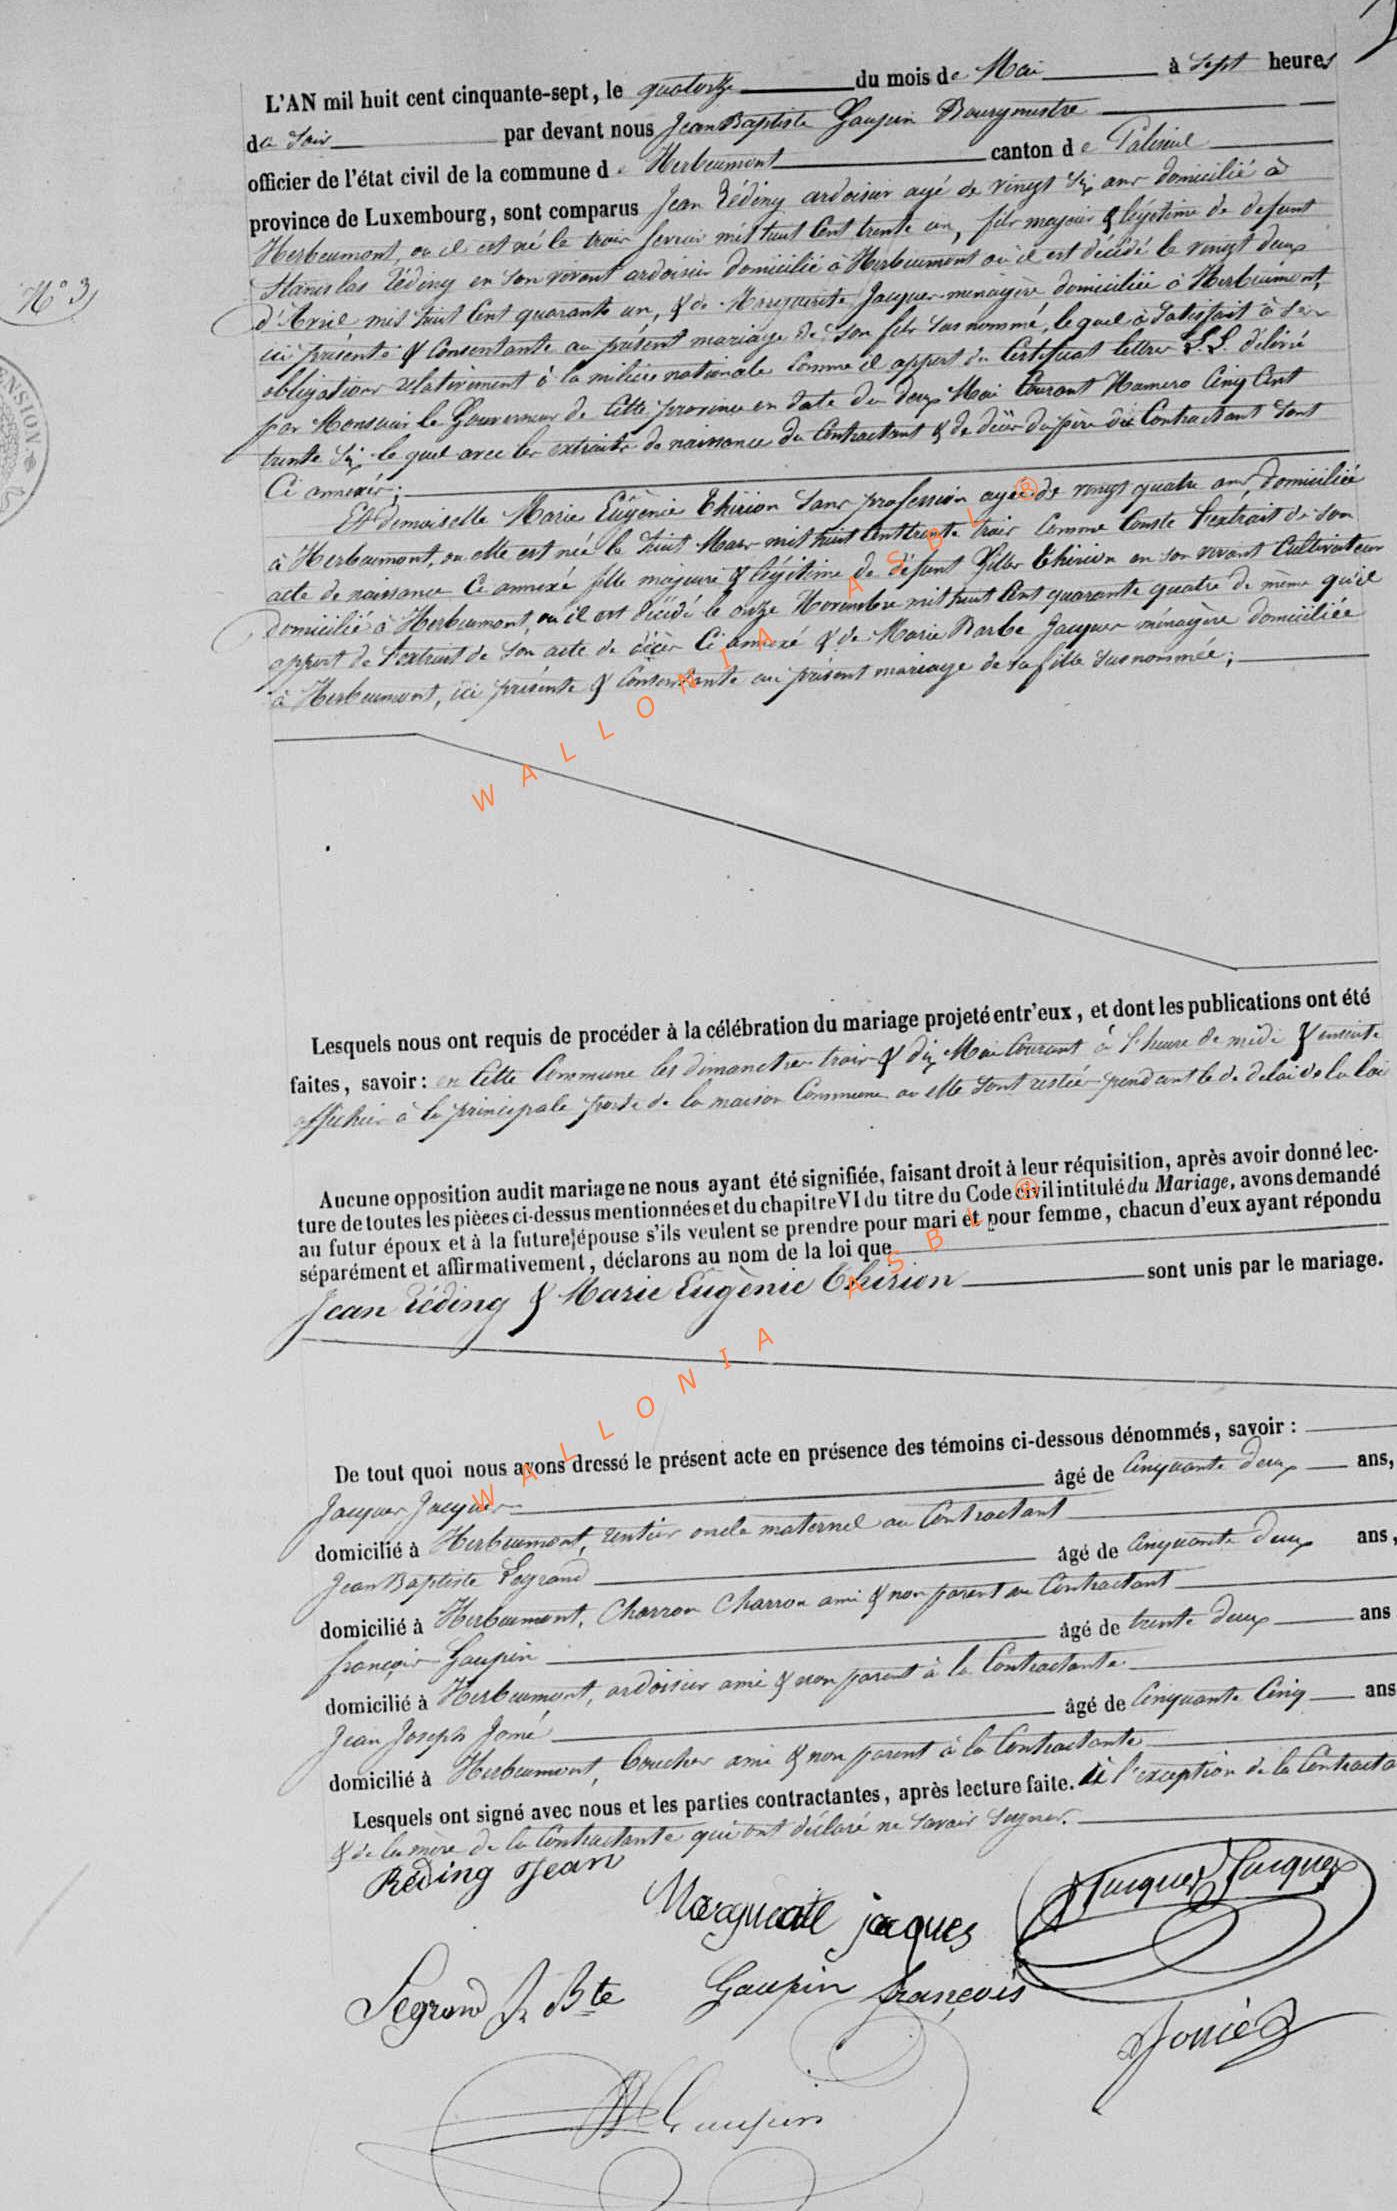 N° 3
L'AN mil huit cent cinquante-sept, le quatorze du mois de Mai à Sept heures
du Soir par devant nous Jean Baptiste Gaupin Bourgmestre
officier de l'état civil de la commune de Herbeumont canton de Paliseul
province de Luxembourg, sont comparus Jean Réding ardoisier agé de vingt Six ans domicilié à
Herbeumont, ou il est né le trois fevrier mil huit Cent trente un, fils majeur & légitime de defunt
Stanislas Réding en Son vivant ardoisier domicilié à Herbeumont où il est décédé le vingt deux
d'Avril mil huit Cent quarante un, & de Marguerite Jacques menagère domiciliée à Herbeumont,
ici présente & Consentante au présent mariage de son fils Susnommé, lequel à Satisfait à Ses
obligations relativement à la milice nationale Comme il appert du Certificat lettres L.L. délivré
par Monsieur le Gouverneur de Cette province en date du deux Mai Courant Numero Cinq Cent
trente Six le quel avec les extraits de naissance du Contractant & de décès du père du Contractant Sont
Ci annexés;
Et demoiselle Marie Eugènie Thirion Sans profession agée de vingt quatre ans, domiciliée
à Herbeumont, ou elle est née le huit Mars mil huit Cent trente trois Comme Conste l'extrait de Son
acte de naissance Ci annexé fille majeure & légitime de défunt Gilles Thirion en son vivant Cultivateur
domicilié à Herbeumont, où il est décédé le onze Novembre mil huit Cent quarante quatre de même qu'il
appert de l'extrait de Son acte de décès Ci annexé & de Marie Barbe Jacques ménagère domiciliée
à Herbeumont, ici présente & Consentante au présent mariage de sa fille susnommée;
Lesquels nous ont requis de procéder à la célébration du mariage projeté entr'eux, et dont les publications ont été
faites, savoir: en Cette Commune les dimanches trois & dix Mai Courant à l'heure de midi & ensuite
affichées à la principale porte de la maison Commune ou elle Sont restées pendant le de delai de la loi
Aucune opposition audit mariage ne nous ayant été signifiée, faisant droit à leur réquisition, après avoir donné lec-
ture de toutes les pièces ci-dessus mentionnées et du chapitre VI du titre du Code civil intitulé du Mariage, avons demandé
au futur époux et à la future épouse s'ils veulent se prendre pour mari et pour femme, chacun d'eux ayant répondu
séparément et affirmativement, déclarons au nom de la loi que
Jean Réding & Marie Eugènie Thirion sont unis par le mariage.
De tout quoi nous avons dressé le présent acte en présence des témoins ci-dessous dénommés, savoir:
Jacques Jacques âgé de Cinquante deux ans,
domicilié à Herbeumont, rentier oncle maternel au Contractant
Jean Baptiste Legrand âgé de Cinquante deux ans,
domicilié à Herbeumont, Charron Charron ami & non parent au Contractant
françois Gaupin âgé de trente deux ans
domicilié à Herbeumont, ardoisier ami & non parent à la Contractante
Jean Joseph Jomé âgé de Cinquante Cinq ans
domicilié à Herbeumont, boucher ami & non parent à la Contractante
Lesquels ont signé avec nous et les parties contractantes, après lecture faite. à l'exception de la Contracta
& de la mère de la Contractante qui ont déclaré ne Savoir Signer.
Réding Jean
Marguerite jacques
Jacques Jacques
Legrand J. Bte
Gaupin françois
Gaupin
WALLONIA ASBL ®
WALLONIA ASBL ®